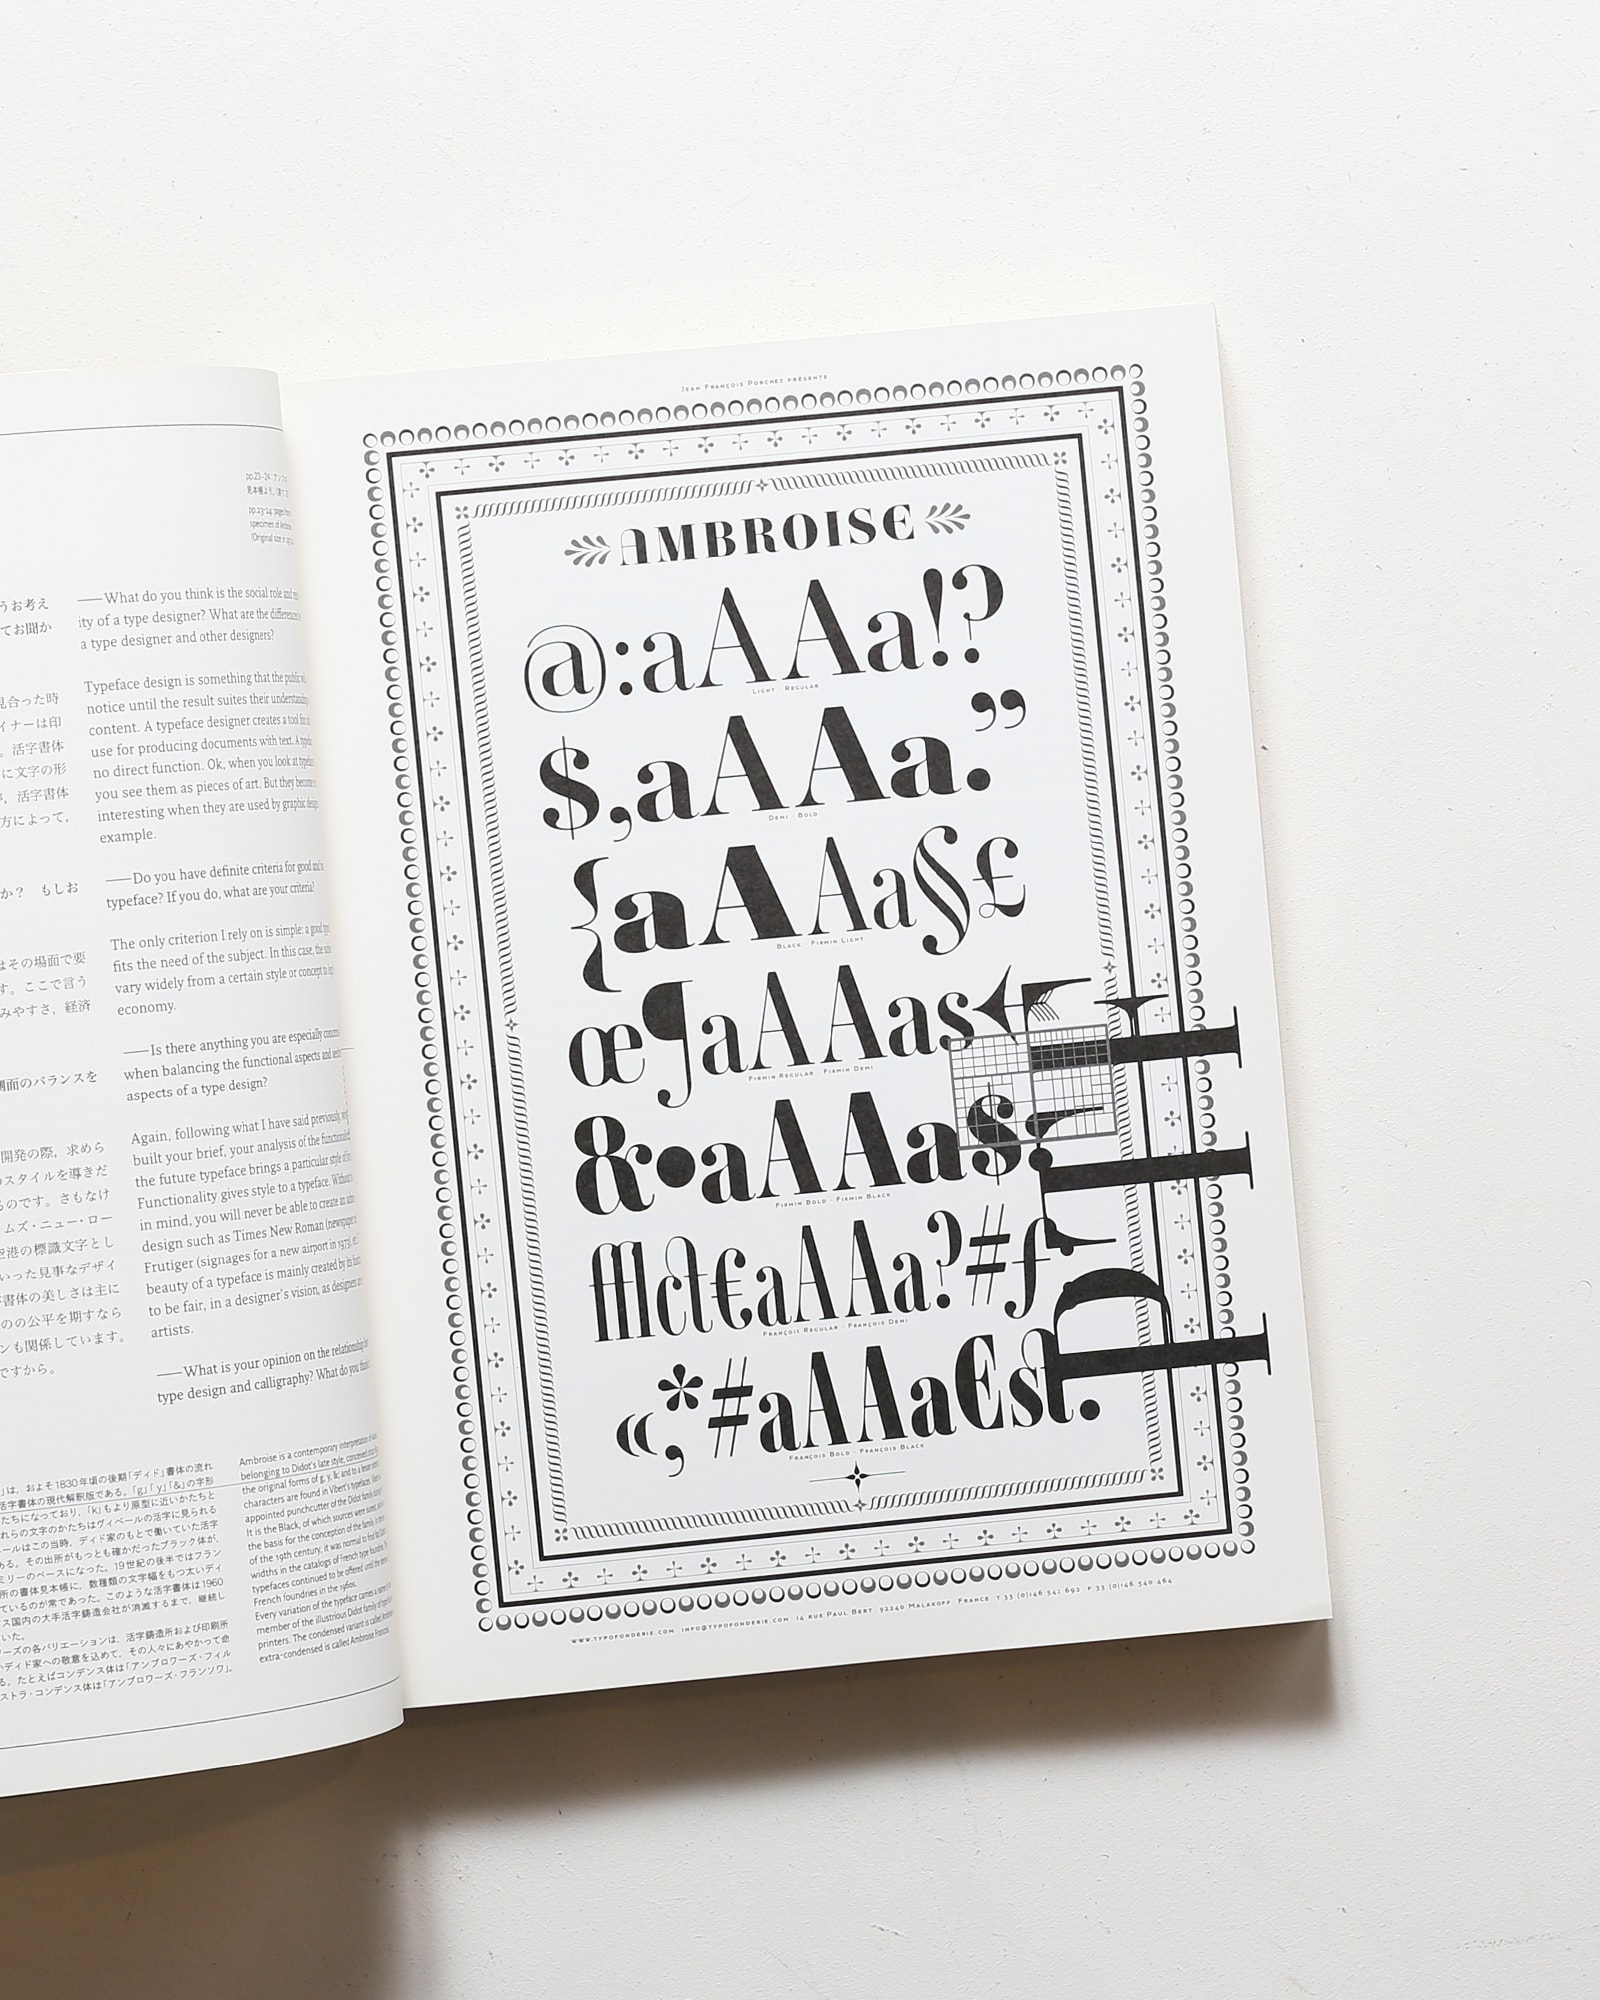 うお考え
てお聞か
見合った時
イナーは印
。活字書体
に文字の形
活字書体
方によって,
か？ もしお
はその場面で要
す。ここで言う
みやすさ, 経済
側面のバランスを
開発の際, 求めら
のスタイルを導きだ
るのです。さもなけ
ムズ・ニュー・ロー
空港の標識文字とし
いった見事なデザイ
字書体の美しさは主に
のの公平を期すなら
ンも関係しています。
ですから。
——What do you think is the social role and
ity of a type designer? What are the differences
a type designer and other designers?
Typeface design is something that the public
notice until the result suites their understanding
content. A typeface designer creates a tool for
use for producing documents with text. A
no direct function. Ok, when you look at
you see them as pieces of art. But they become
interesting when they are used by graphic
example.
——Do you have definite criteria for good and
typeface? If you do, what are your criteria?
The only criterion I rely on is simple: a good
fits the need of the subject. In this case, the
vary widely from a certain style or concept to
economy.
——Is there anything you are especially
when balancing the functional aspects and
aspects of a type design?
Again, following what I have said previously,
built your brief, your analysis of the
the future typeface brings a particular style
Functionality gives style to a typeface.
in mind, you will never be able to create an
design such as Times New Roman
Frutiger (signages for a new airport in
beauty of a typeface is mainly created by its
to be fair, in a designer's vision, as designers
artists.
——What is your opinion on the relationship
type design and calligraphy? What do you
は、およそ1830年頃の後期「ディド」書体の流れ
活字書体の現代解釈版である。「g」「y」「&」の字形
たちになっており、「k」もより原型に近いかたちと
れらの文字のかたちはヴィベールの活字に見られる
ールはこの当時、ディド家のもとで働いていた活字
ある。その出所がもっとも確かだったブラック体が、
ミリーのベースになった。19世紀の後半ではフラン
所の書体見本帳に、数種類の文字幅をもつ太いディ
ているのが常であった。このような活字書体は1960
ス国内の大手活字鋳造会社が消滅するまで、継続し
いた。
ーズの各バリエーションは、活字鋳造所および印刷所
ディド家への敬意を込めて、その人々にあやかって命
る。たとえばコンデンス体は「アンブロワーズ・フィル
ストラ・コンデンス体は「アンブロワーズ・フランソワ」。
Ambroise is a contemporary interpretation of
belonging to Didot's late style, conceived
the original forms of g, y, &, and to a lesser
characters are found in Vibert's typefaces.
appointed punchcutter of the Didot family
It is the Black, of which sources were
the basis for the conception of the family.
of the 19th century, it was normal to find
widths in the catalogs of French type
typefaces continued to be offered until the
French foundries in the 1960s.
Every variation of the typeface carries a name
member of the illustrious Didot family of
printers. The condensed variant is called
extra-condensed is called Ambroise
Jean François Porchez présente
AMBROISE
@:aAAa!?
Light · Regular
$,aAAa.”
Demi · Bold
{aAAa§£
Black · Firmin Light
œ¶aAAas
Firmin Regular · Firmin Demi
&•aAAas
Firmin Bold · Firmin Black
ct€aAAa?#f
François Regular · François Demi
«;*#aAAa€st.
François Bold · François Black
www.typofonderie.com info@typofonderie.com 14 rue Paul Bert 92240 Malakoff France T 33 (0)146 542 692 F 33 (0)146 540 464